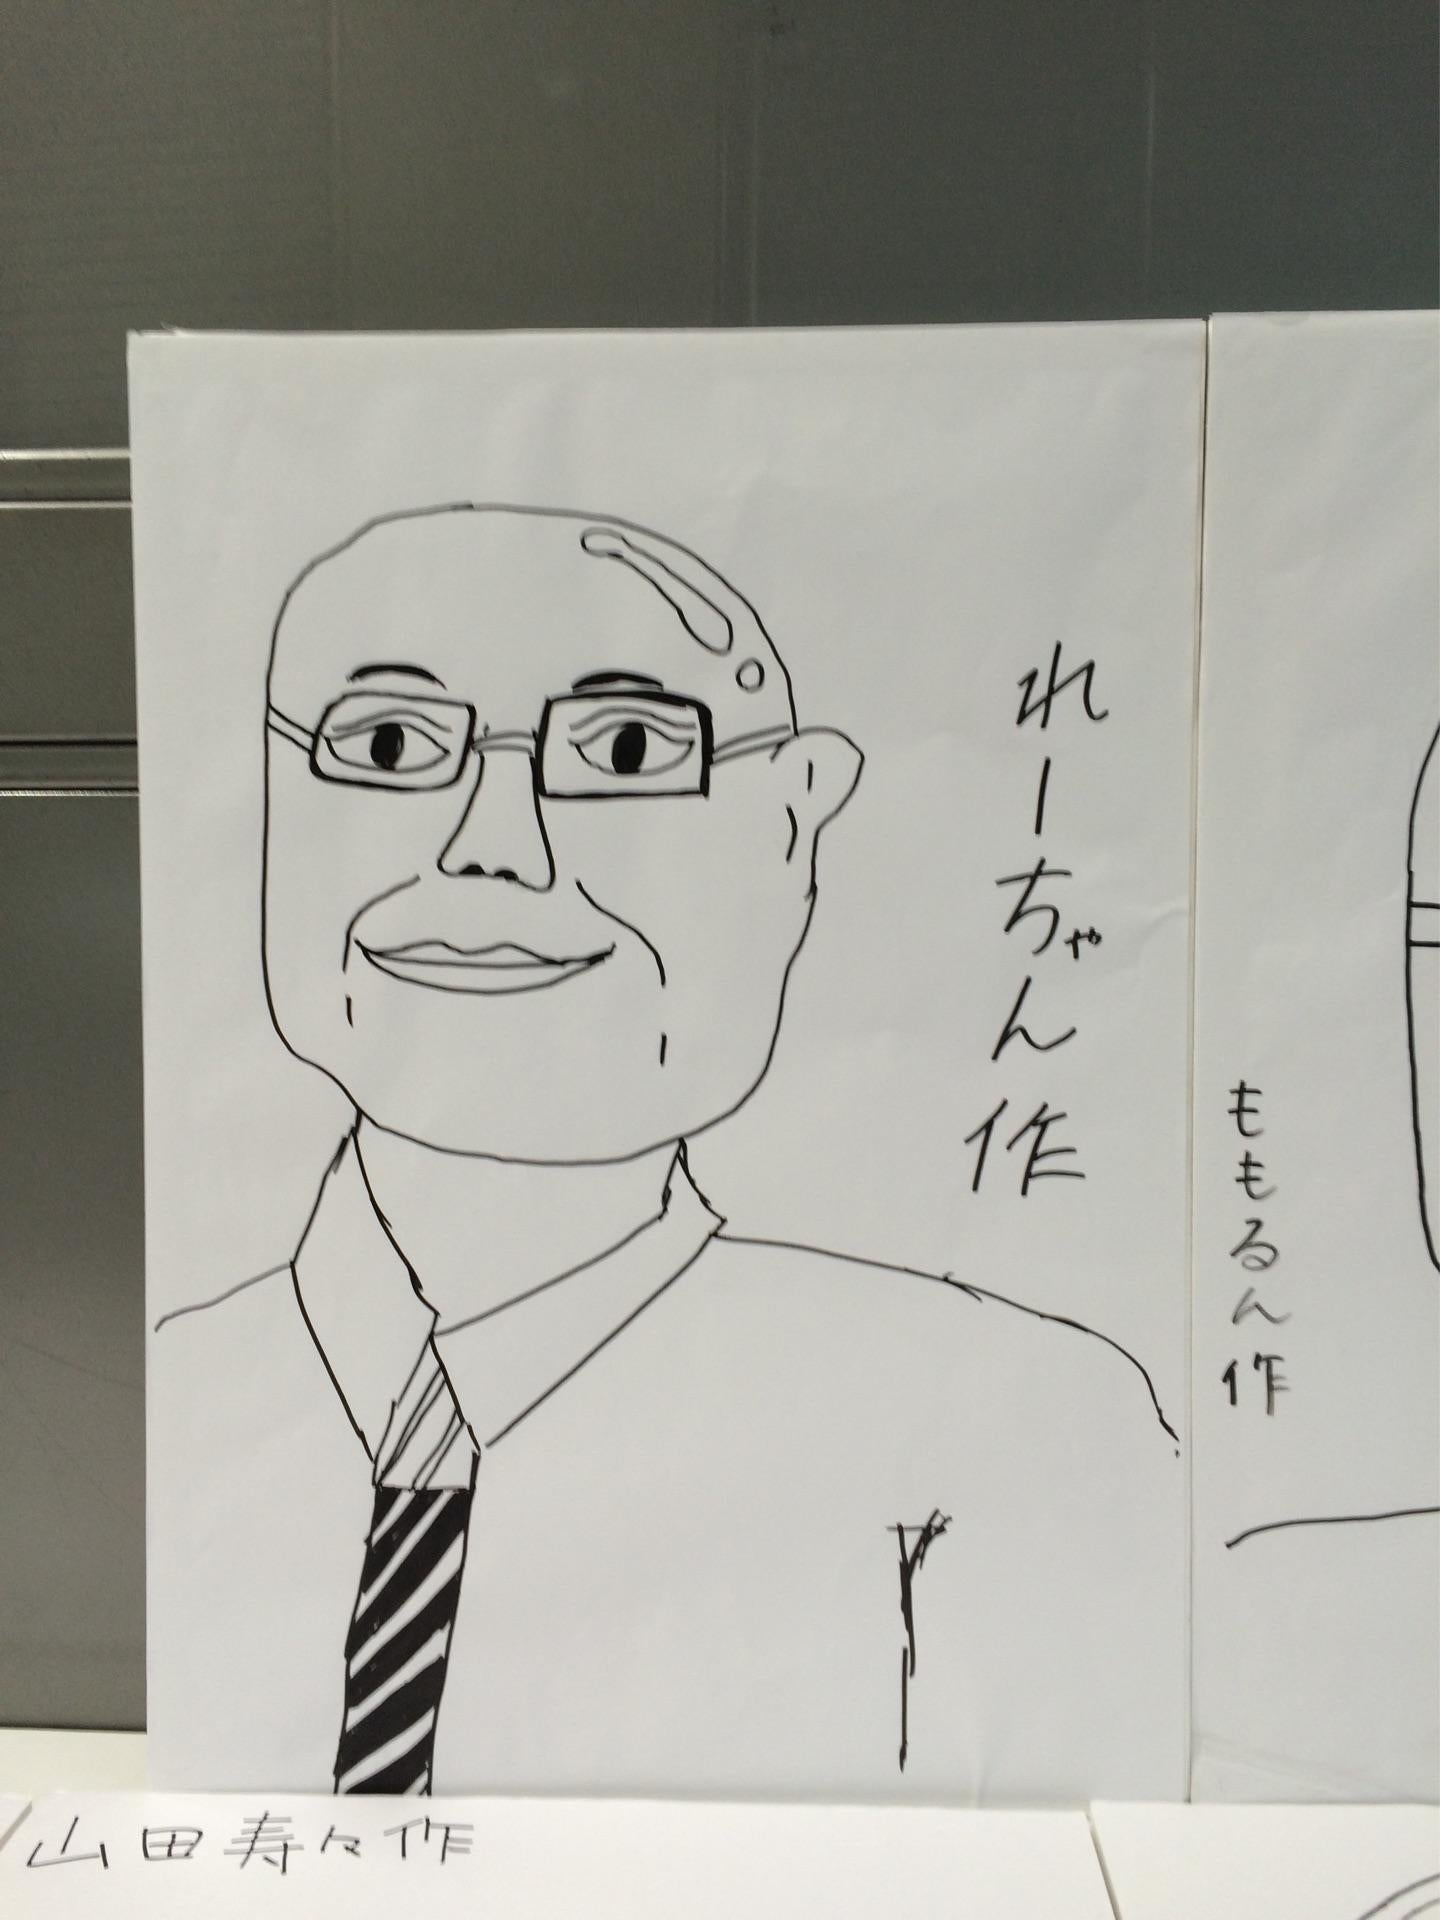 れーちゃん作
ももるん作
山田寿々作